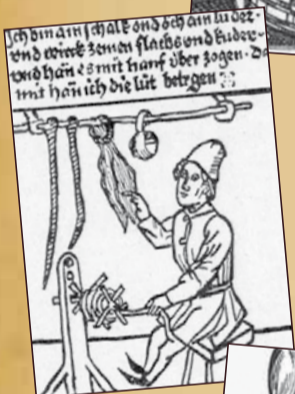 Ich bin ain schalk ond och ain luder-
vnd wirck zemen flachs vnd kuder-
vnd han es mit hanf über zogen. Da
mit han ich die lüt betrgen